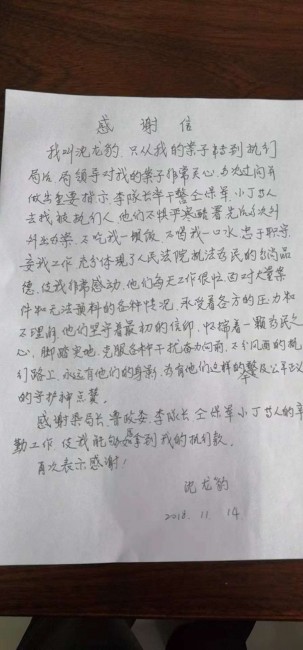 感 谢 信
我叫沈龙豹,只从我的案子转到执行
局后,局领导对我的案子非常关心,多次过问并
做出重要指示,李队长、牟干警、仝保军、小丁等人
去找被执行人,他们不惧严寒酷暑,先后多次
外出办案,不吃我一顿饭,不喝我一口水,忠于职守
实我工作,充分体现了人民法院执法为民的高尚品
德,使我非常感动,他们每天工作很忙,面对大量案
件和无法预料的各种情况,承受着各方的压力和
不理解,他们坚守着最初的信仰,怀揣着一颗为民之
心,脚踏实地,克服各种干扰奋力向前,不分风雨的执
行路上,永远有他们的身影,为有他们这样的警及公平正义
的守护神点赞。
感谢桑局长、鲁政委、李队长、仝保军、小丁等人的辛
勤工作,使我能够拿到我的执行款。
再次表示感谢!
沈龙豹
2018. 11 14